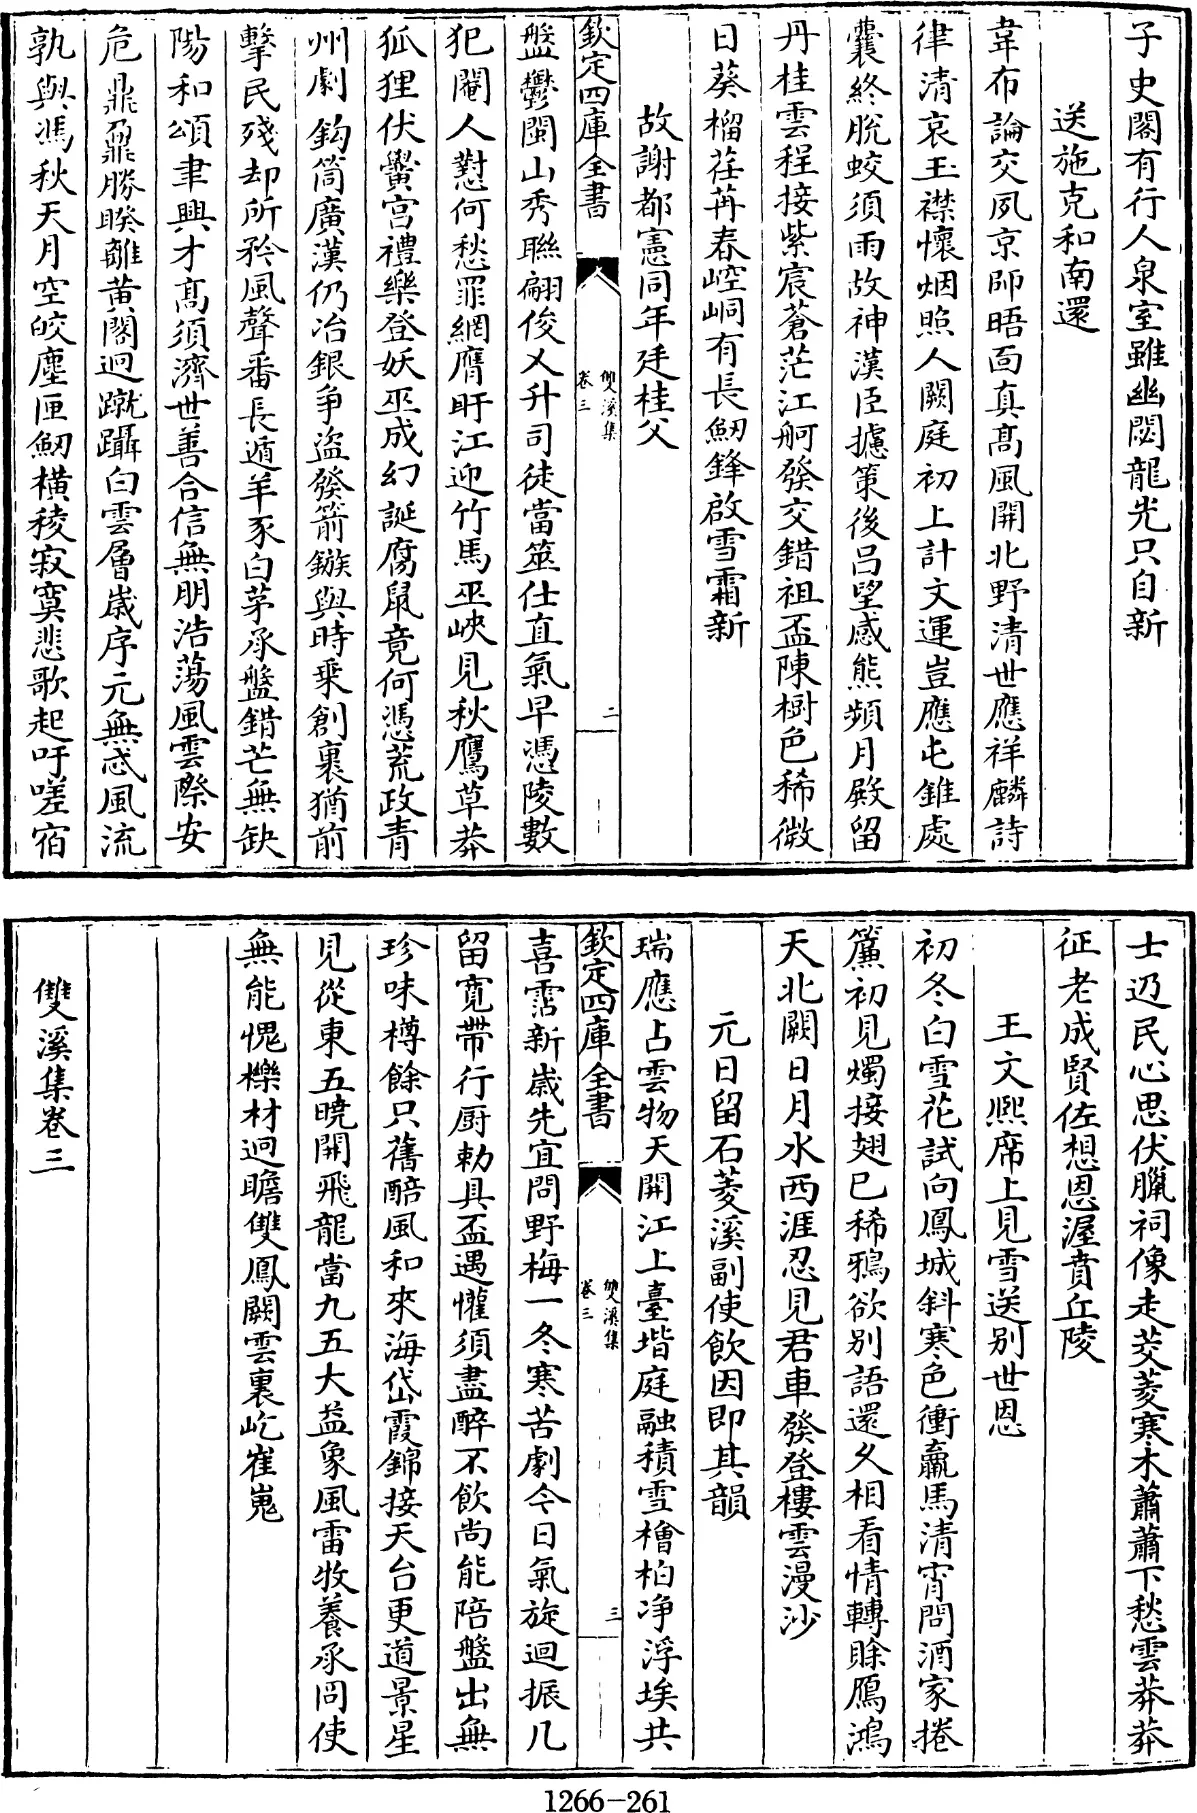 子史閣有行人泉室雖幽閟龍光只自新
送施克和南還
韋布論交夙京師晤面真髙風開北野清世應祥麟詩
律清哀玉襟懷烟照人闕庭初上計文運豈應屯錐處
囊終脱蛟須雨故神漢臣攄策後吕望感熊頻月殿留
丹桂雲程接紫宸蒼茫江舸發交錯祖盃陳樹色稀微
日葵榴荏苒春崆峒有長劒鋒啟雪霜新
故謝都憲同年廷桂父
欽定四庫全書
雙溪集
卷三
二
盤鬱閩山秀聯翩俊乂升司徒當筮仕直氣早憑陵數
犯閹人懟何愁罪網膺盱江迎竹馬巫峽見秋鷹草莽
狐狸伏黌宫禮樂登妖巫成幻誕腐鼠竟何憑荒政青
州劇鈎筒廣漢仍冶銀爭盜發箭鏃與時乗創裏猶前
擊民殘却所矜風聲番長遁羊豕白茅承盤錯芒無缺
陽和頌聿興才髙須濟世善合信無朋浩蕩風雲際安
危鼎鼐勝暌離黄閣迥蹴躡白雲層歲序元無忒風流
孰與馮秋天月空皎塵匣劒橫稜寂寞悲歌起吁嗟宿
士迈民心思伏臘祠像走茭菱寒木蕭蕭下愁雲莽莽
征老成賢佐想恩渥賁丘陵
王文熈席上見雪送别世恩
初冬白雪花試向鳳城斜寒色衝羸馬清宵問酒家捲
簾初見燭接翅已稀鴉欲别語還乆相看情轉賖鴈鴻
天北闕日月水西涯忍見君車發登樓雲漫沙
元日留石菱溪副使飲因即其韻
瑞應占雲物天開江上臺堦庭融積雪檜柏净浮埃共
欽定四庫全書
雙溪集
卷三
三
喜霑新歲先宜問野梅一冬寒苦劇今日氣旋迴振几
留寛帶行厨勅具盃遇懽須盡醉不飲尚能陪盤出無
珍味樽餘只舊醅風和來海岱霞錦接天台更道景星
見從東五曉開飛龍當九五大益象風雷牧養承同使
無能愧櫟材迥瞻雙鳳闕雲裏屹崔嵬
雙溪集卷三
1266—261